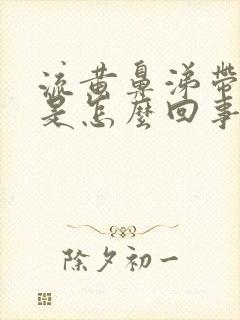 流黄鼻涕带
是怎麽回事
除夕初一